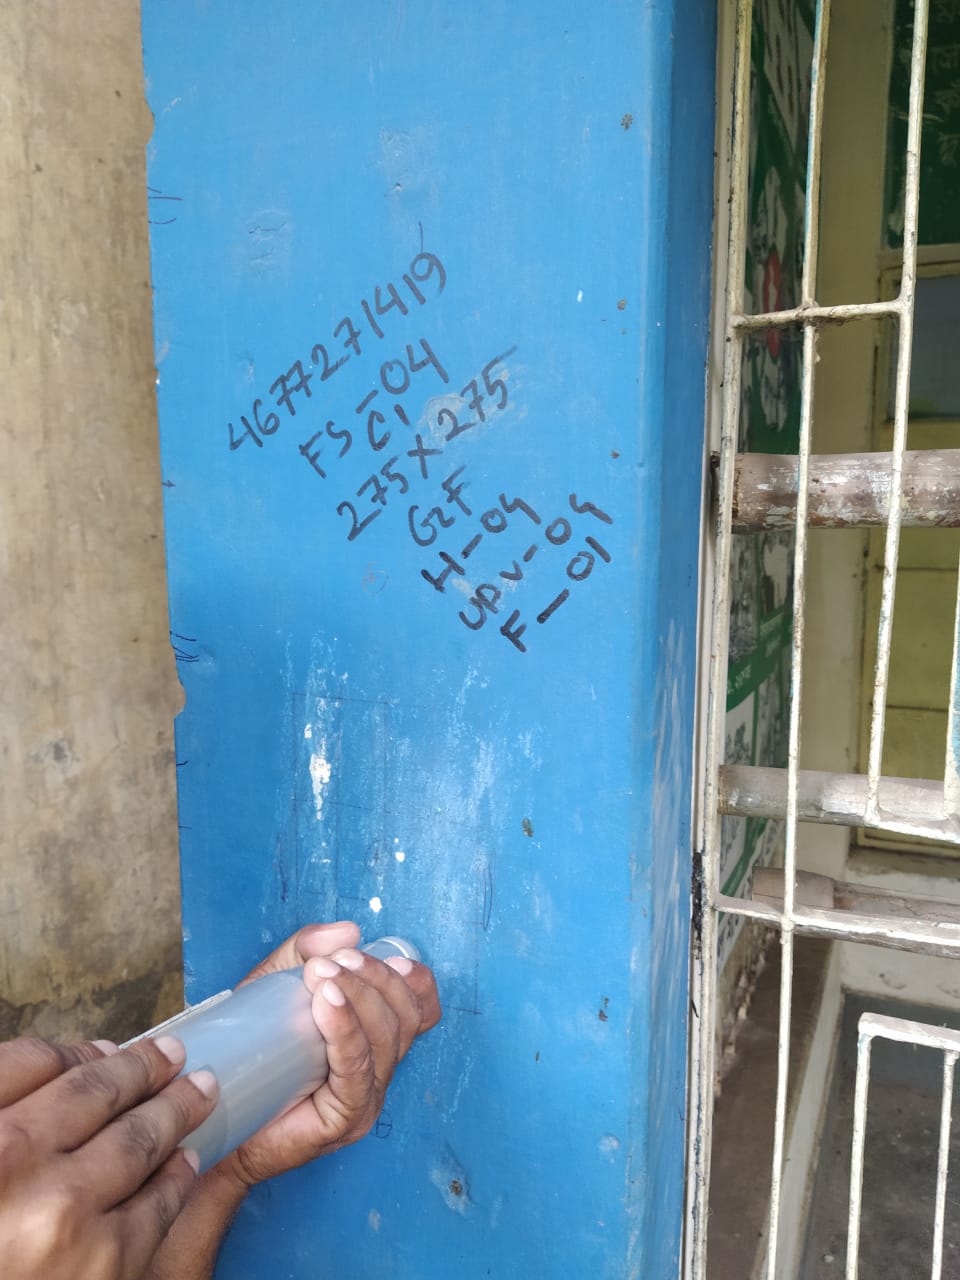 4677271419
FS-04
C1
275 X 275
GrF
H-04
UPV-04
F-01